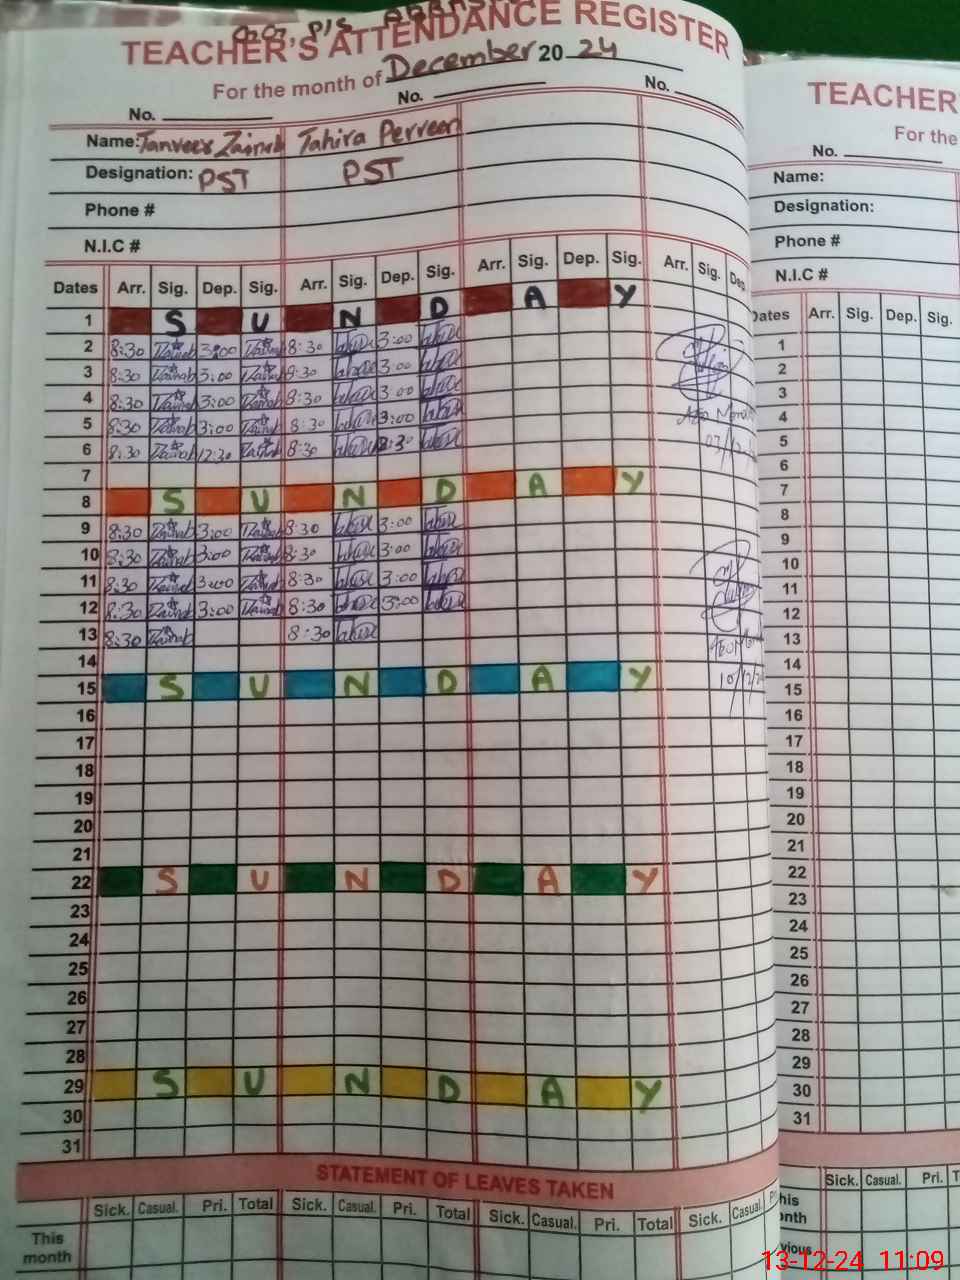 TEACHER'S ATTENDANCE REGISTER
For the month of December 20 24
No. No. No.
Name: Tanveer Zainab Tahira Perveen
Designation: PST PST
Phone #
N.I.C #
Dates Arr. Sig. Dep. Sig. Arr. Sig. Dep. Sig. Arr. Sig. Dep. Sig. Arr. Sig. Dep.
1 S U N D A Y
2 8:30 Zainab 3:00 Zainab 8:30 3:00
3 8:30 Zainab 3:00 Zainab 8:30 3:00
4 8:30 Zainab 3:00 Zainab 8:30 3:00
5 8:30 Zainab 3:00 Zainab 8:30 3:00
6 8:30 Zainab 12:30 Zainab 8:30
7
8 S U N D A Y
9 8:30 Zainab 3:00 Zainab 8:30 3:00
10 8:30 Zainab 3:00 Zainab 8:30 3:00
11 8:30 Zainab 3:00 Zainab 8:30 3:00
12 8:30 Zainab 3:00 Zainab 8:30 3:00
13 8:30 Zainab 8:30
14
15 S U N D A Y
16
17
18
19
20
21
22 S U N D A Y
23
24
25
26
27
28
29 S U N D A Y
30
31
STATEMENT OF LEAVES TAKEN
Sick. Casual. Pri. Total Sick. Casual. Pri. Total Sick. Casual. Pri. Total Sick. Casual.
This
month
TEACHER
For the
No.
Name:
Designation:
Phone #
N.I.C #
Dates Arr. Sig. Dep. Sig.
1
2
3
4
5
6
7
8
9
10
11
12
13
14
15
16
17
18
19
20
21
22
23
24
25
26
27
28
29
30
31
Sick. Casual. Pri.
13-12-24 11:09